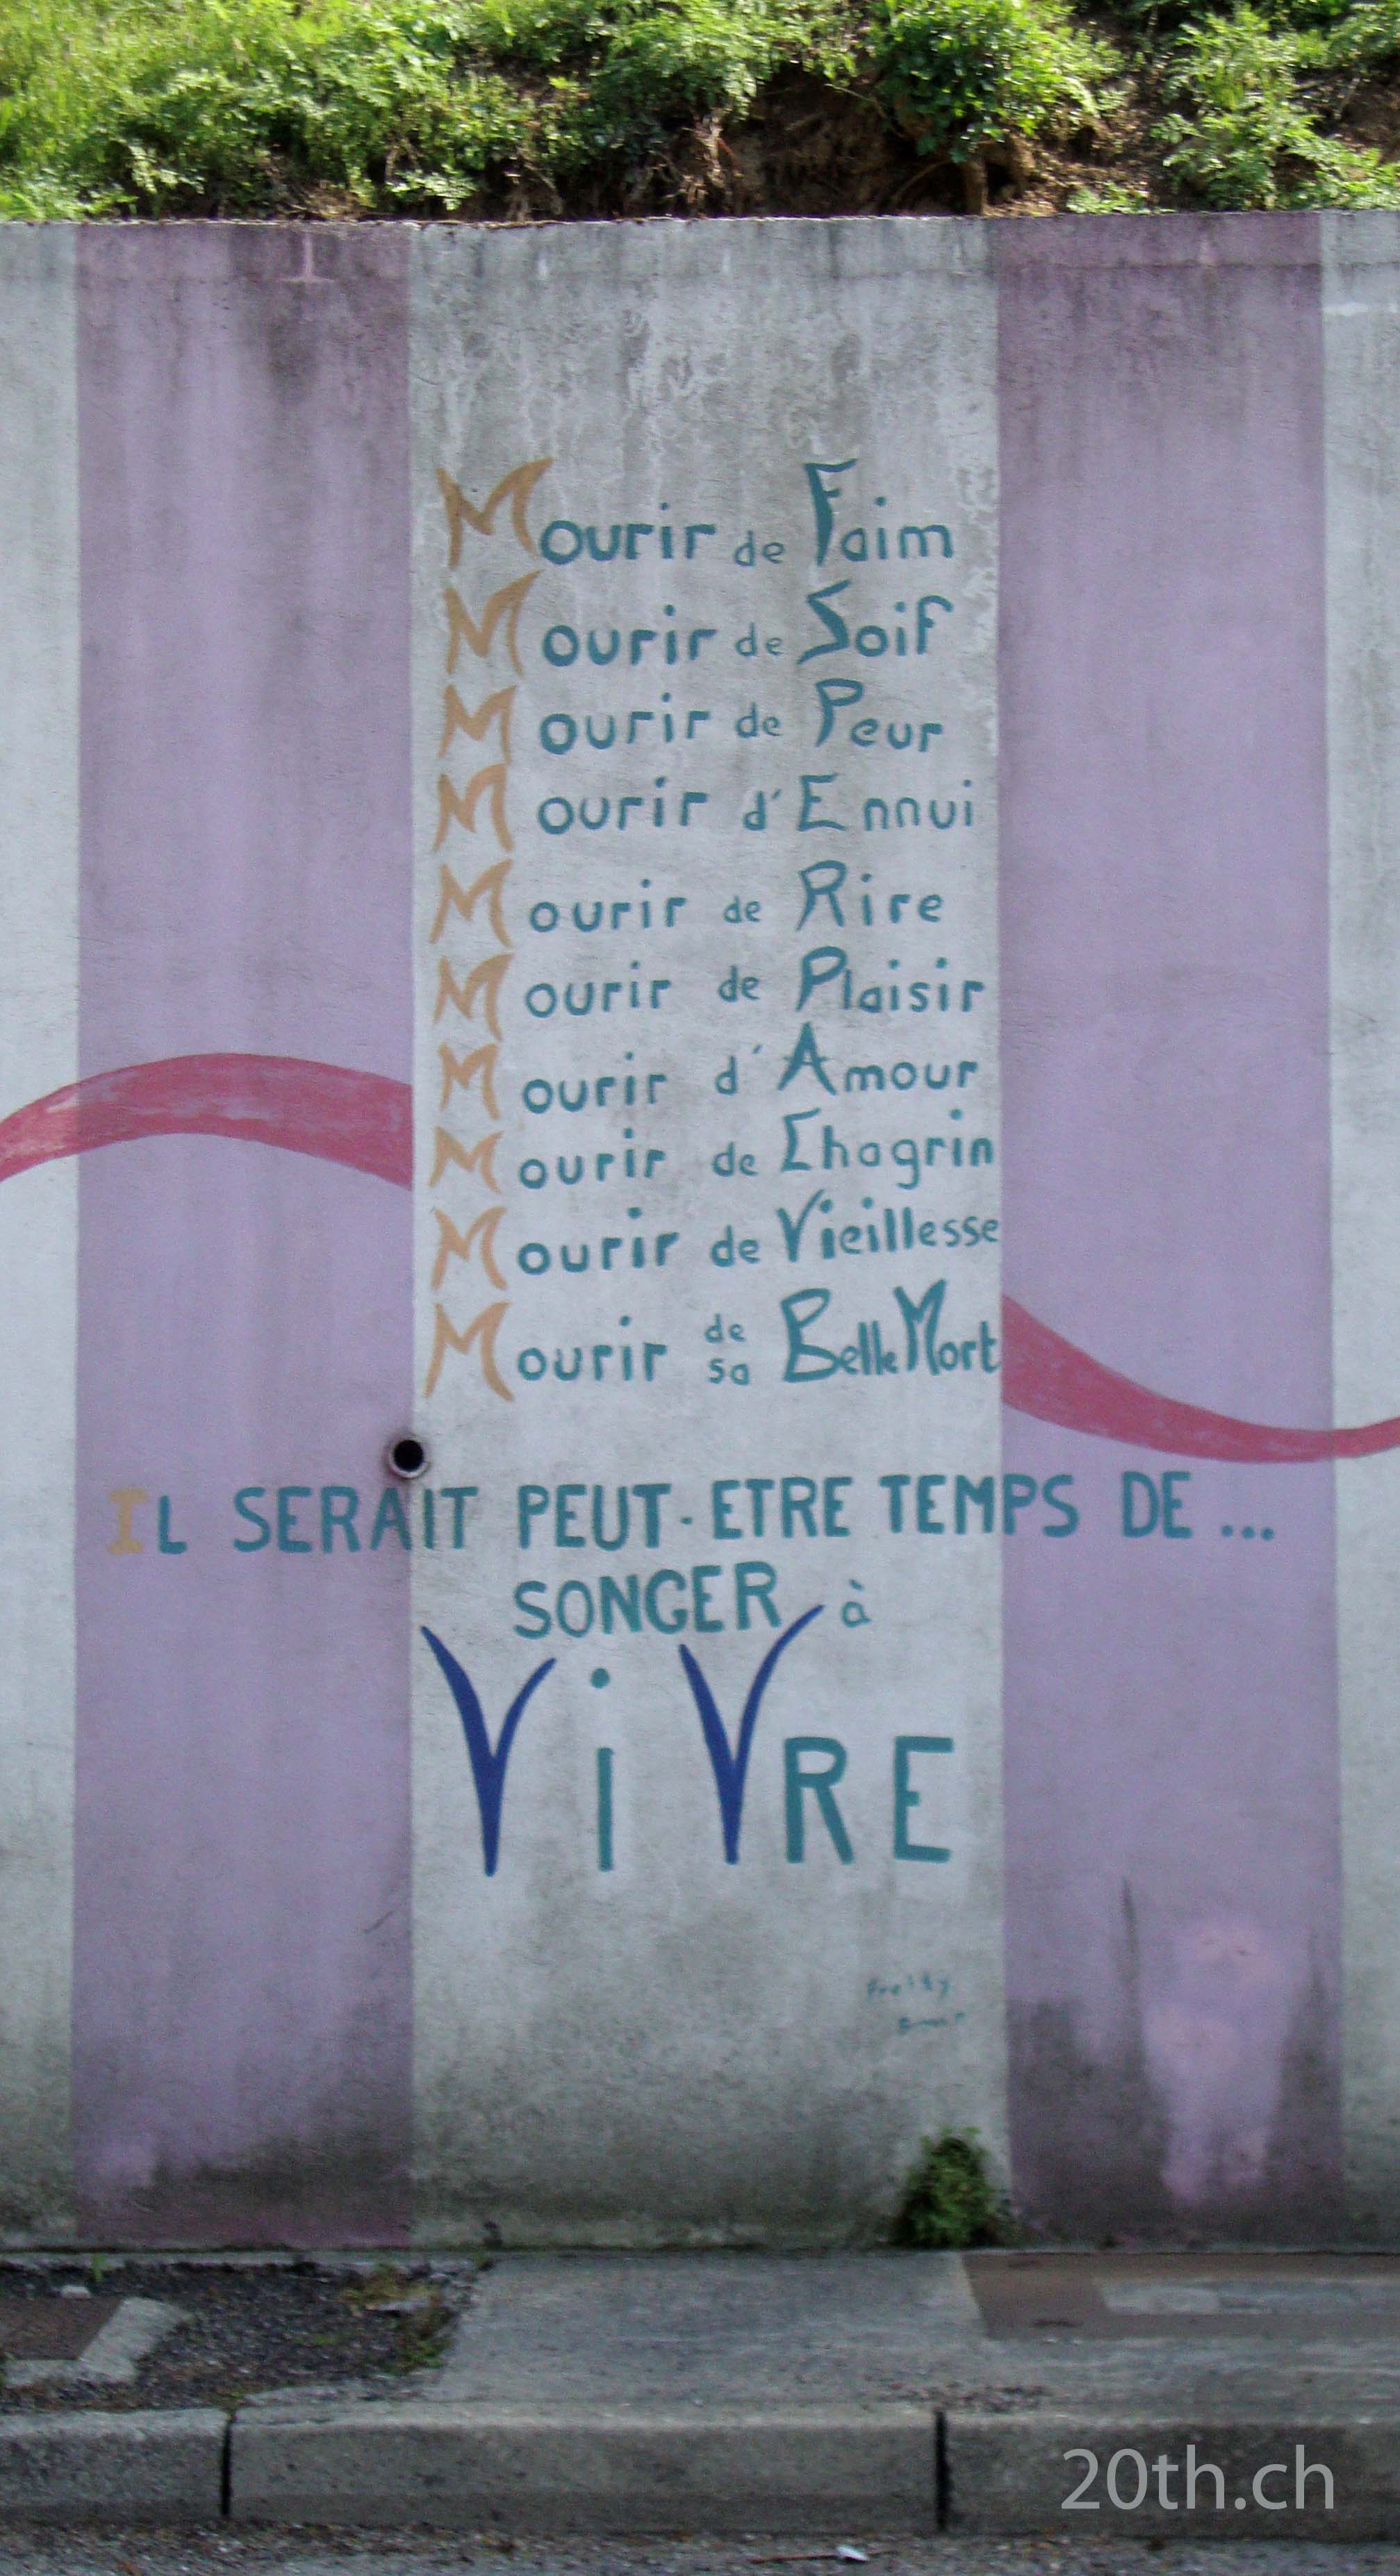 Mourir de Faim
Mourir de Soif
Mourir de Peur
Mourir d'Ennui
Mourir de Rire
Mourir de Plaisir
Mourir d'Amour
Mourir de Chagrin
Mourir de Vieillesse
Mourir de sa Belle Mort
IL SERAIT PEUT-ETRE TEMPS DE...
SONGER à
ViVRE
20th.ch